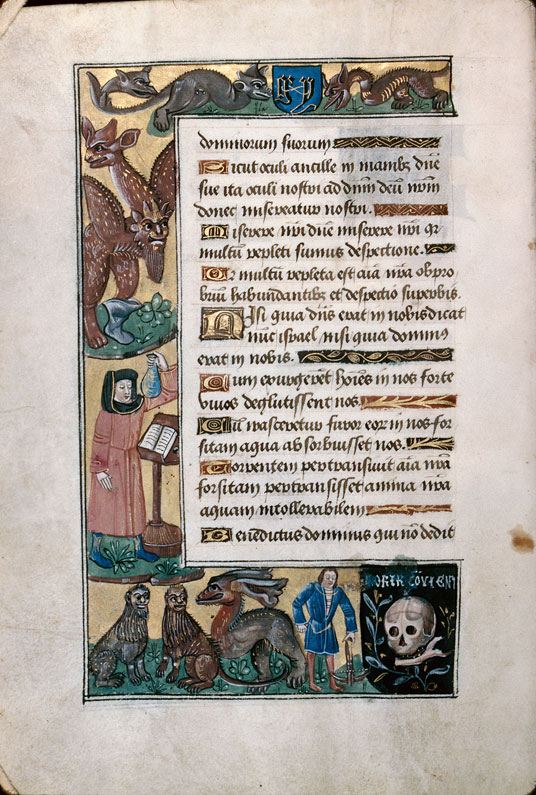 dominorum suorum
Sicut oculi ancille in manibꝫ dn̄e
sue ita oculi nostri ad dnm̄ deū nrm̄
donec misereatur nostri.
Miserere nrī dn̄e miserere nrī qr
multū repleti sumus despectione.
Qr multū repleta est aīa nrā obpro
brium habundantibꝫ et despectio superbis.
Nisi quia dn̄s erat in nobis dicat
nunc israel, nisi quia dominus
erat in nobis.
Cum exurgerēt hoīes in nos forte
vivos deglutissent nos.
Cū irasceretur furor eorꝫ in nos for
sitam aqua absorbuisset nos.
Torrentem pertransiuit aīa nrā
forsitam pertransisset anima nrā
aquam intollerabilem
Benedictus dominus qui nō dedit